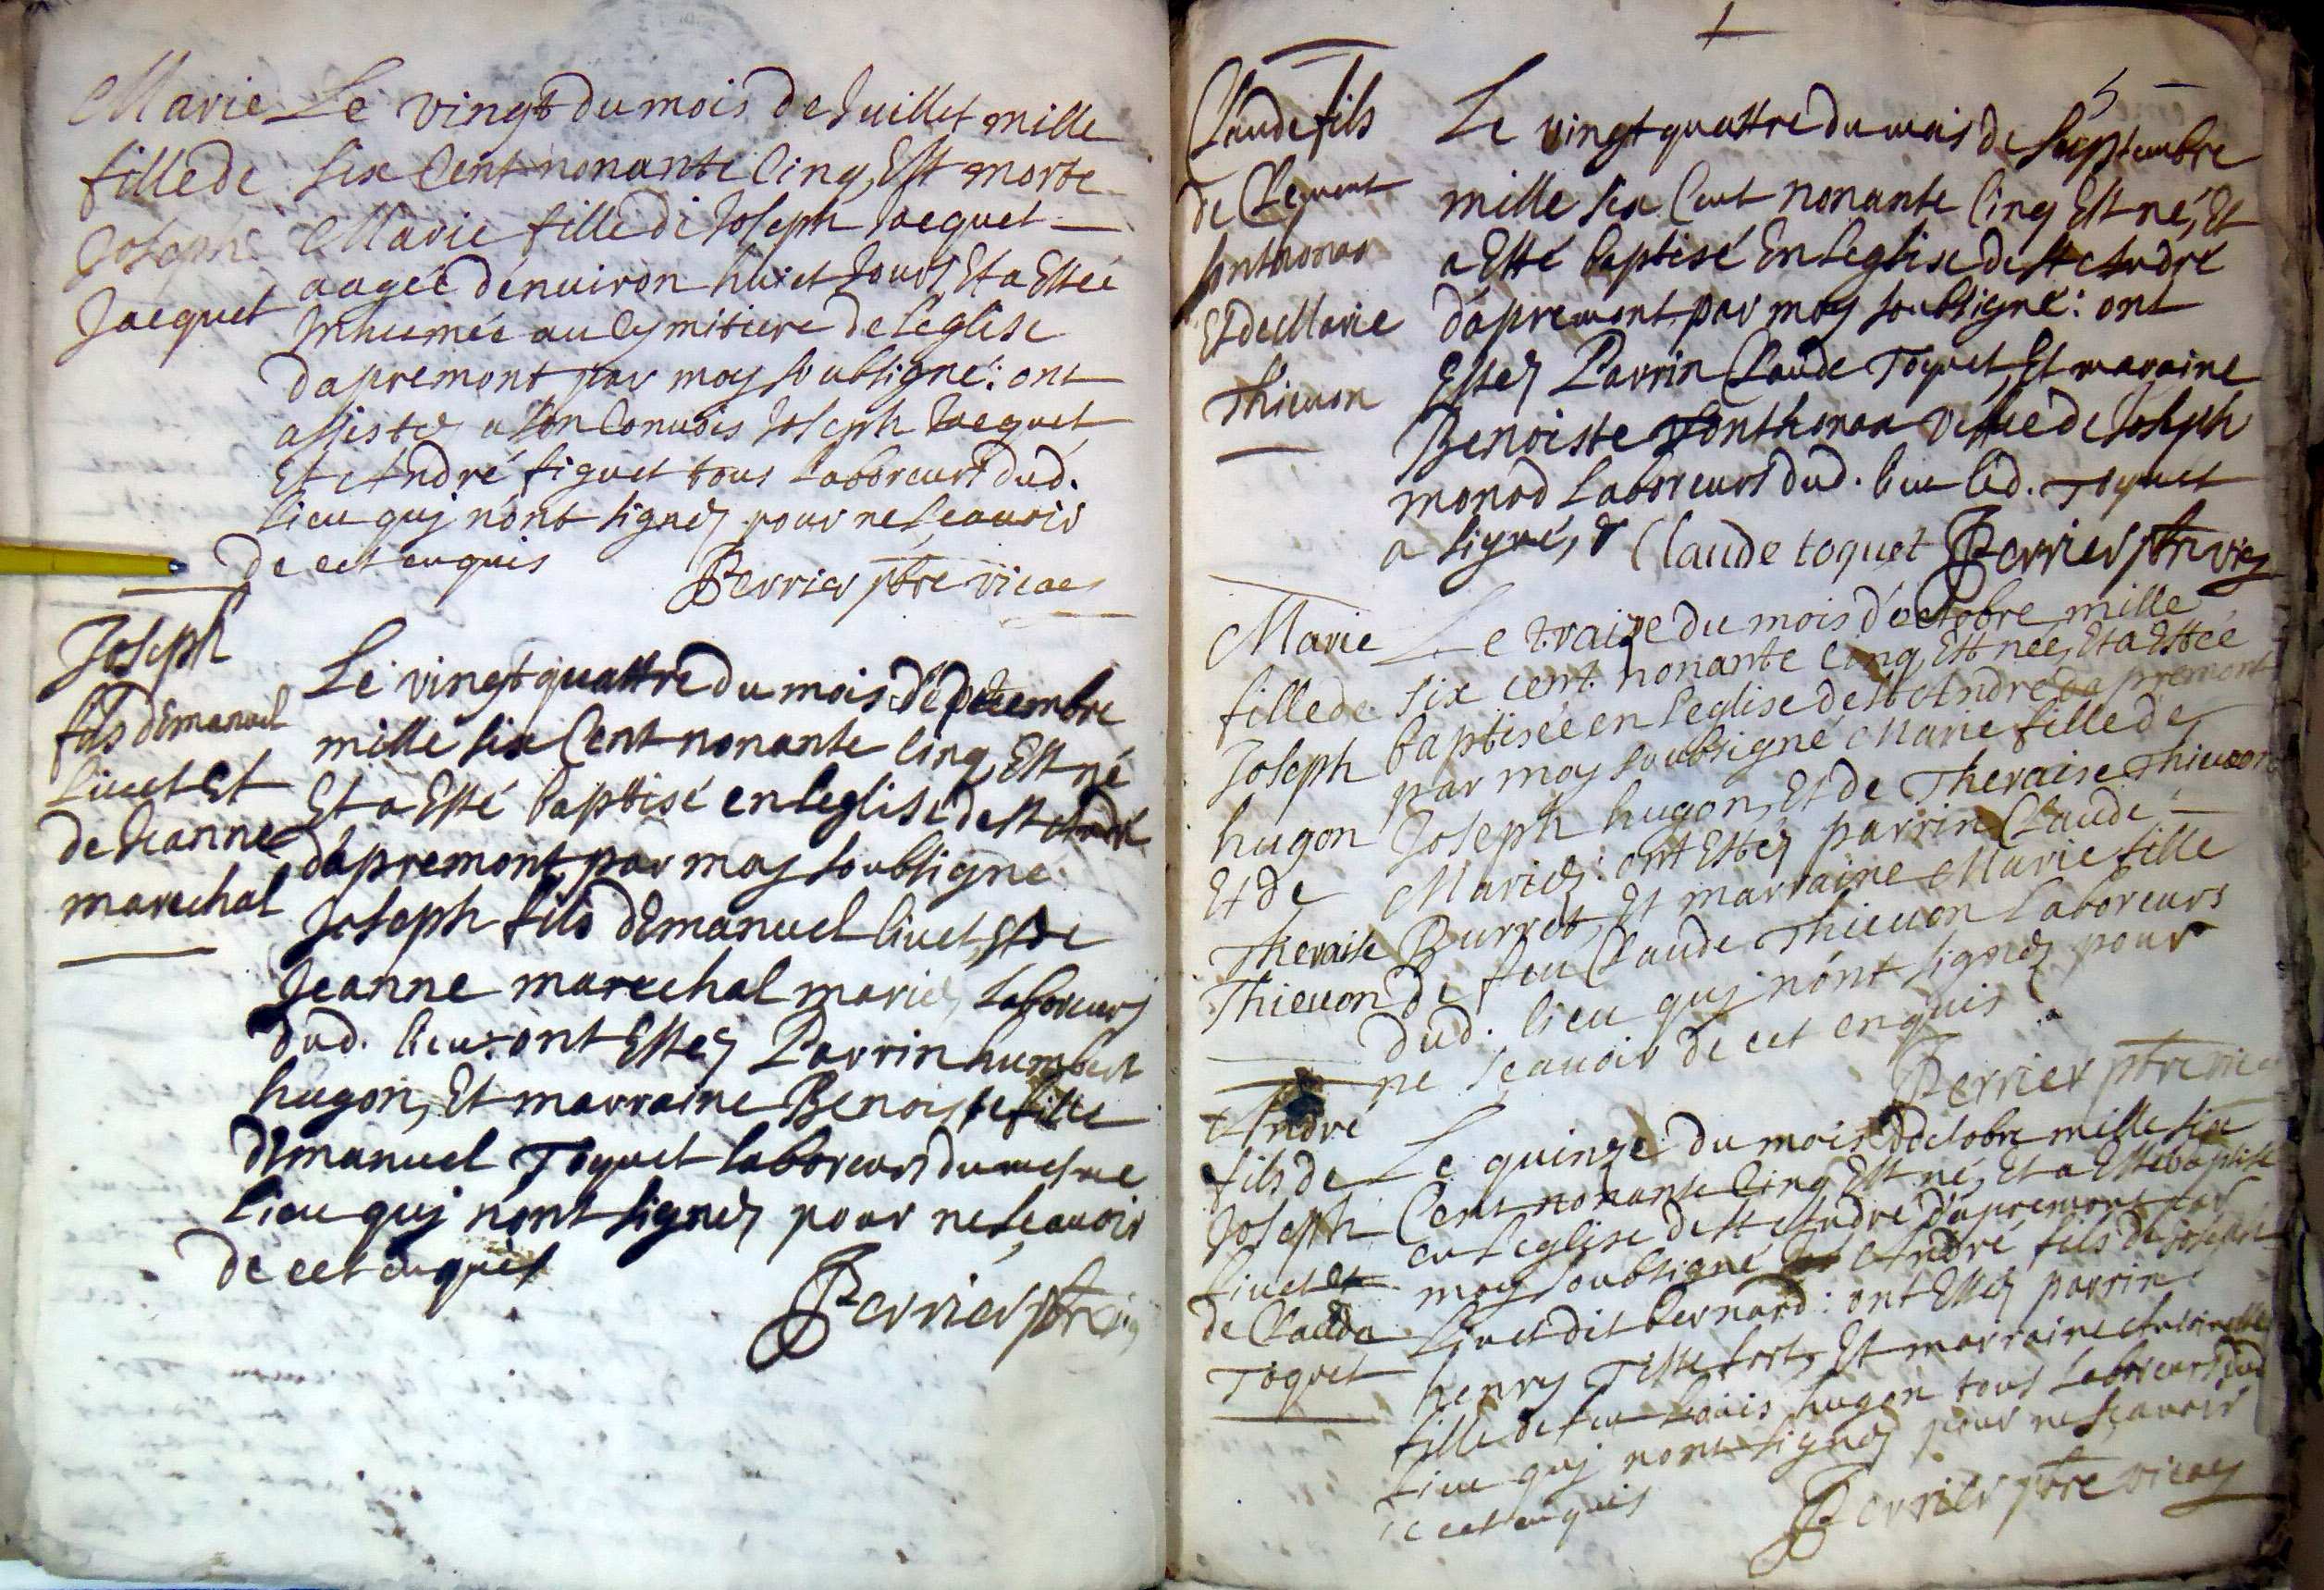 Marie
fille de
Joseph
Jacquet
Le vingt du mois de Juillet mille
six Cent nonante Cinq, Est morte
Marie fille de Joseph Jacquet
aagée dénuiron huict Jours Et a Estée
Inhumée au Cymitiere de leglise
dapremont par moy soubsigné: ont
assistez a son Conuois Joseph Jacquet
Et André figuet tous Laboreurs dud.
lieu quj nont signez pour ne scauoir
de cet enquis
Perrier pbre vicae
Joseph
fils dEmanuel
liuet Et
de Jeanne
marechal
Le vingt quattre du mois de decembre
mille six Cent nonante Cinq, Est né
Et a Esté baptisé en Leglise de St André
dapremont par moy soubsigné
Joseph fils dEmanuel liuet, Et de
Jeanne marechal mariez Laboreurs
dud. lieu: ont Estez Parrin humbert
hugon, Et marraine Benoiste fille
dEmanuel Toquet laboreurs du mesme
lieu quj nont signez pour ne scauoir
de cet enquis
Perrier pbre vic
5
Claude fils
de Clement
sonthonax
Et de Marie
Thieuon
Le vingt quattre du mois de septembre
mille six Cent nonante Cinq Est né, Et
a Esté baptisé En Leglise de St André
dápremont, par moy soubsigné: ont
Estez Parrin Claude Toquet, Et maraine
Benoiste sonthonax de Joseph
monod Laboreurs dud. lieu led. Toquet
a signé, &
Claude toquet Perrier pbre vic
Marie
fille de
Joseph
hugon
Et de
Theraise
Thieuon
Le traize du mois dóctobre mille
six cent nonante cinq, Est née, Et a Estée
baptisée en Leglise de St André dapremont
par moy soubsigné Marie fille de
Joseph hugon, Et de Theraise Thieuon
Mariez: ont Estez parrin Claude
Burret, Et marraine Marie fille
de feu Claude Thieuon Laboreurs
dud. lieu quj nónt signez pour
ne scauoir de cet enquis
Perrier pbre vic
André
fils de
Joseph
liuet et
de Clauda
Toquet
Le quinze du mois doctobre mille six
Cent nonante Cinq Est né, Et a Esté baptisé
en Leglise de St André dápremont par
moy soubsigné André fils de Joseph
Liuet dit bernard: ont Estez parrin
henry Testefort, Et marraine Antoinette
fille de feu Louis hugon tous Laboreurs dud
Lieu quj nont signez pour ne scauoir
de cet enquis
Perrier pbre vicae